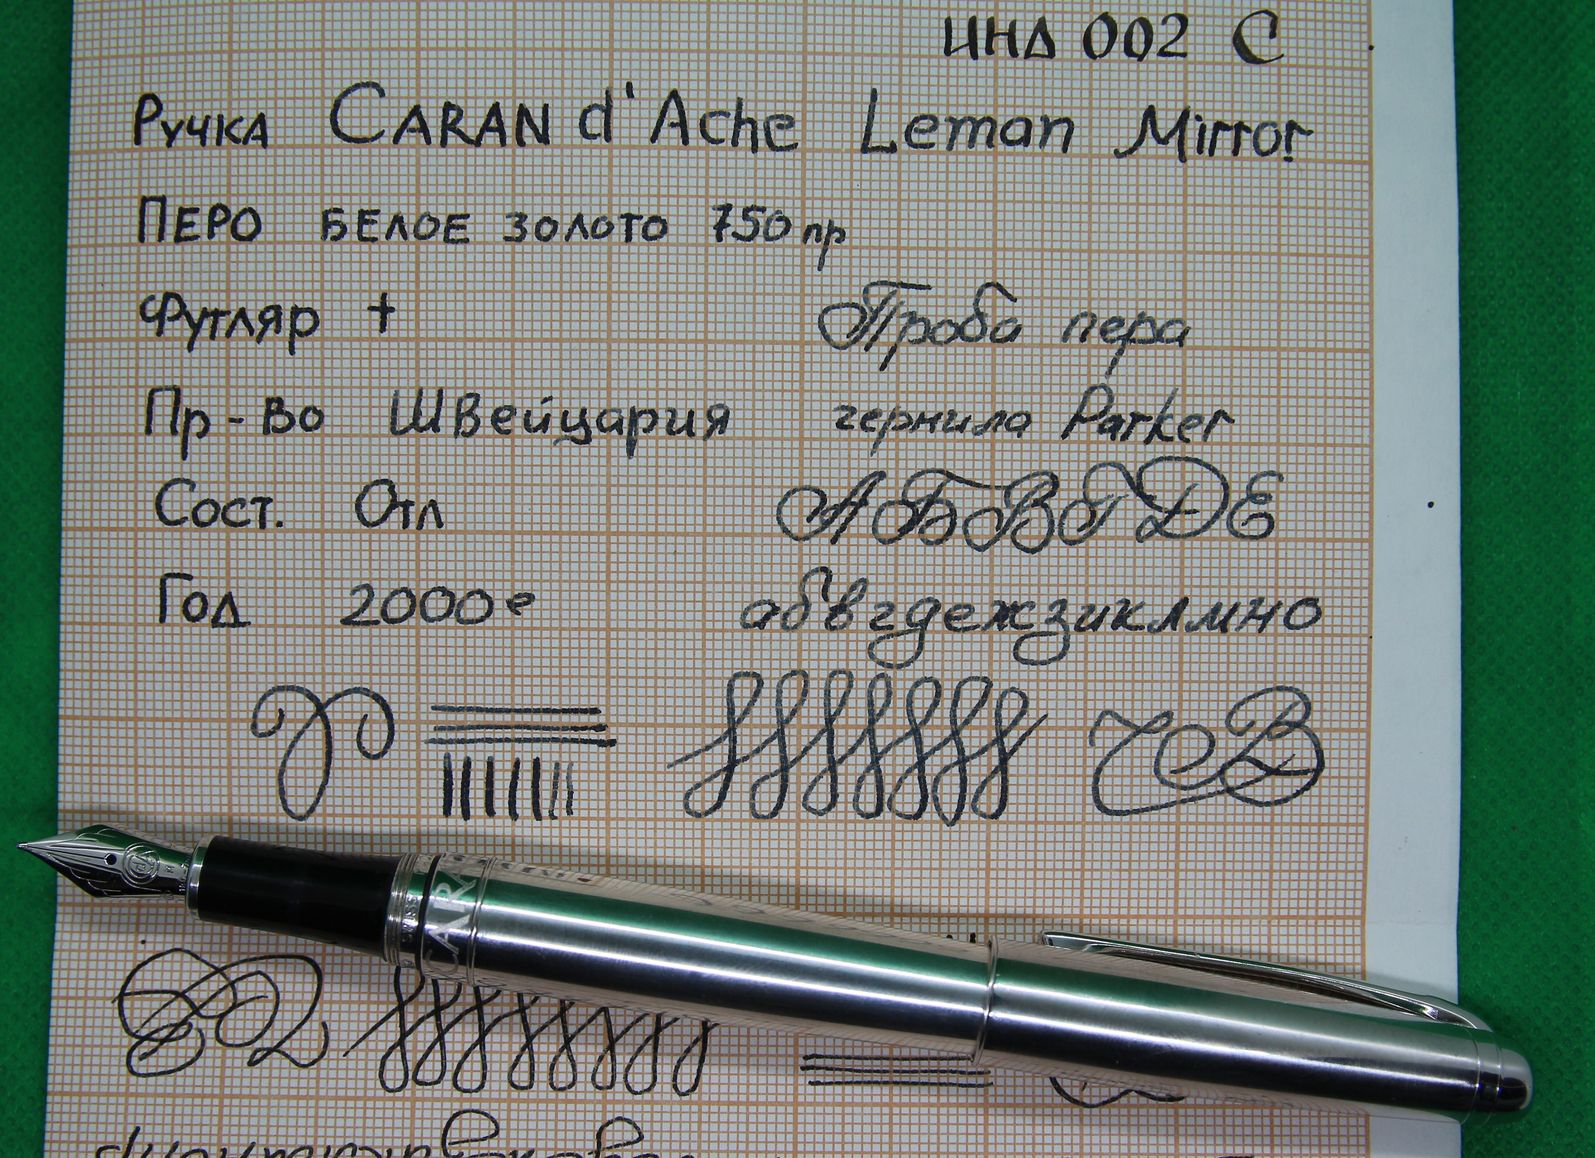 ИНД 002 С
Ручка CARAN d'Ache Leman Mirror
ПЕРО БЕЛОЕ ЗОЛОТО 750 пр
Футляр +
Проба пера
Пр-во Швейцария
чернила Parker
Сост. Отл
АБВГДЕ
Год 2000е
абвгдежзиклмно
CARA